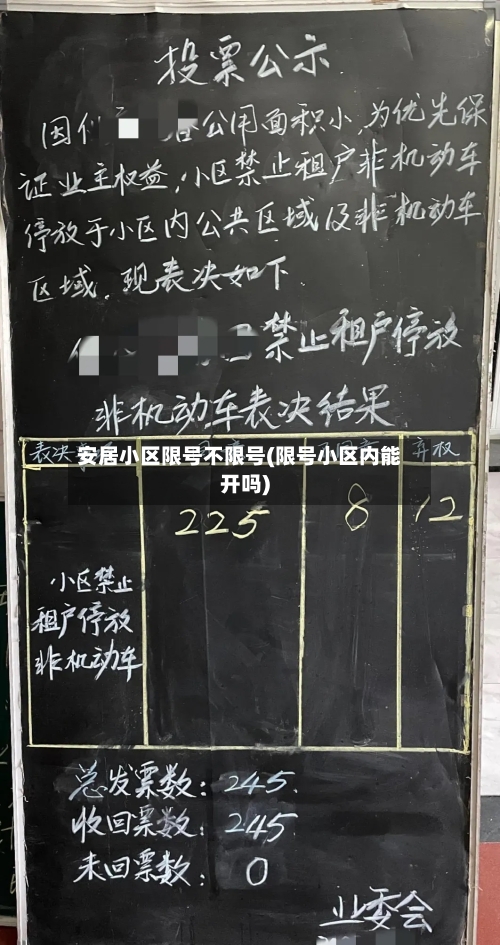 投票公示
因 公用面积小,为优先保
证业主权益,小区禁止租户非机动车
停放于小区内公共区域及非机动车
区域.现表决如下.
禁止租户停放
非机动车表决结果
表决 弃权
安居小区限号不限号(限号小区内能
开吗)
225 8 12
小区禁止
租户停放
非机动车
总发票数: 245.
收回票数: 245
未回票数: 0
业委会